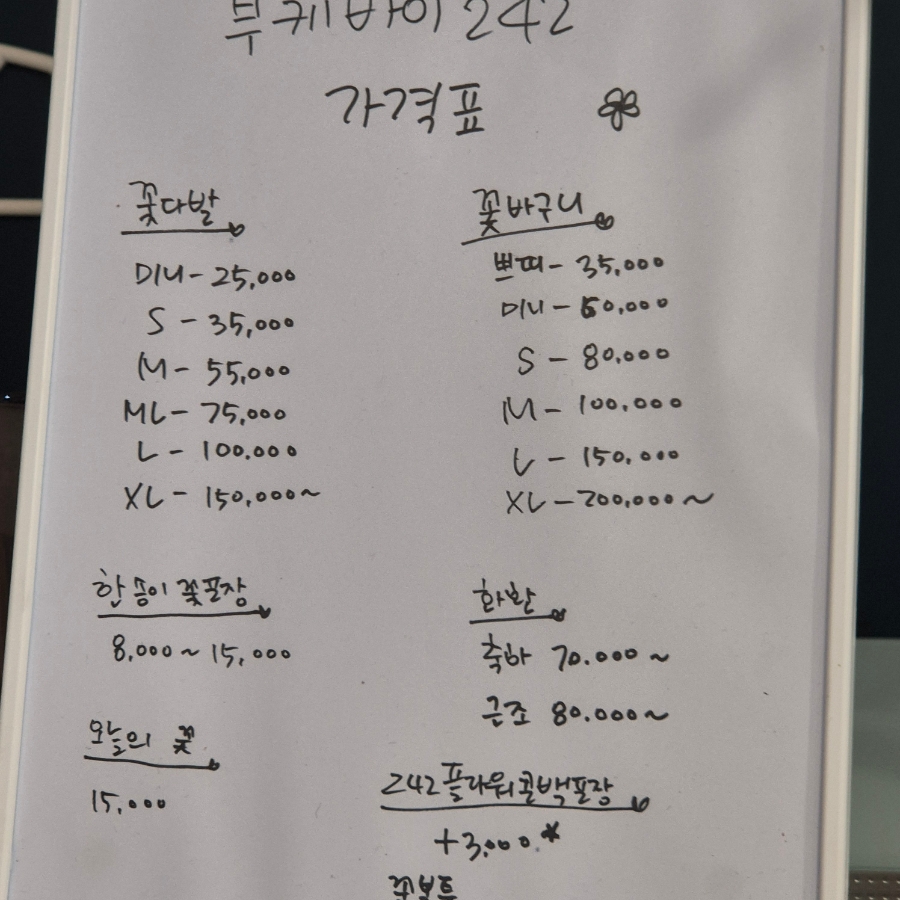 부케바이 242
가격표
꽃다발
미니 - 25,000
S - 35,000
M - 55,000
ML - 75,000
L - 100.000
XL - 150,000~
꽃바구니
쁘띠 - 35,000
미니 - 60,000
S - 80,000
M - 100.000
L - 150.000
XL - 200,000~
한송이 꽃포장
8,000 ~ 15,000
오늘의 꽃
15,000
화환
축하 70.000~
근조 80.000~
242플라워콜백포장
+3,000.*